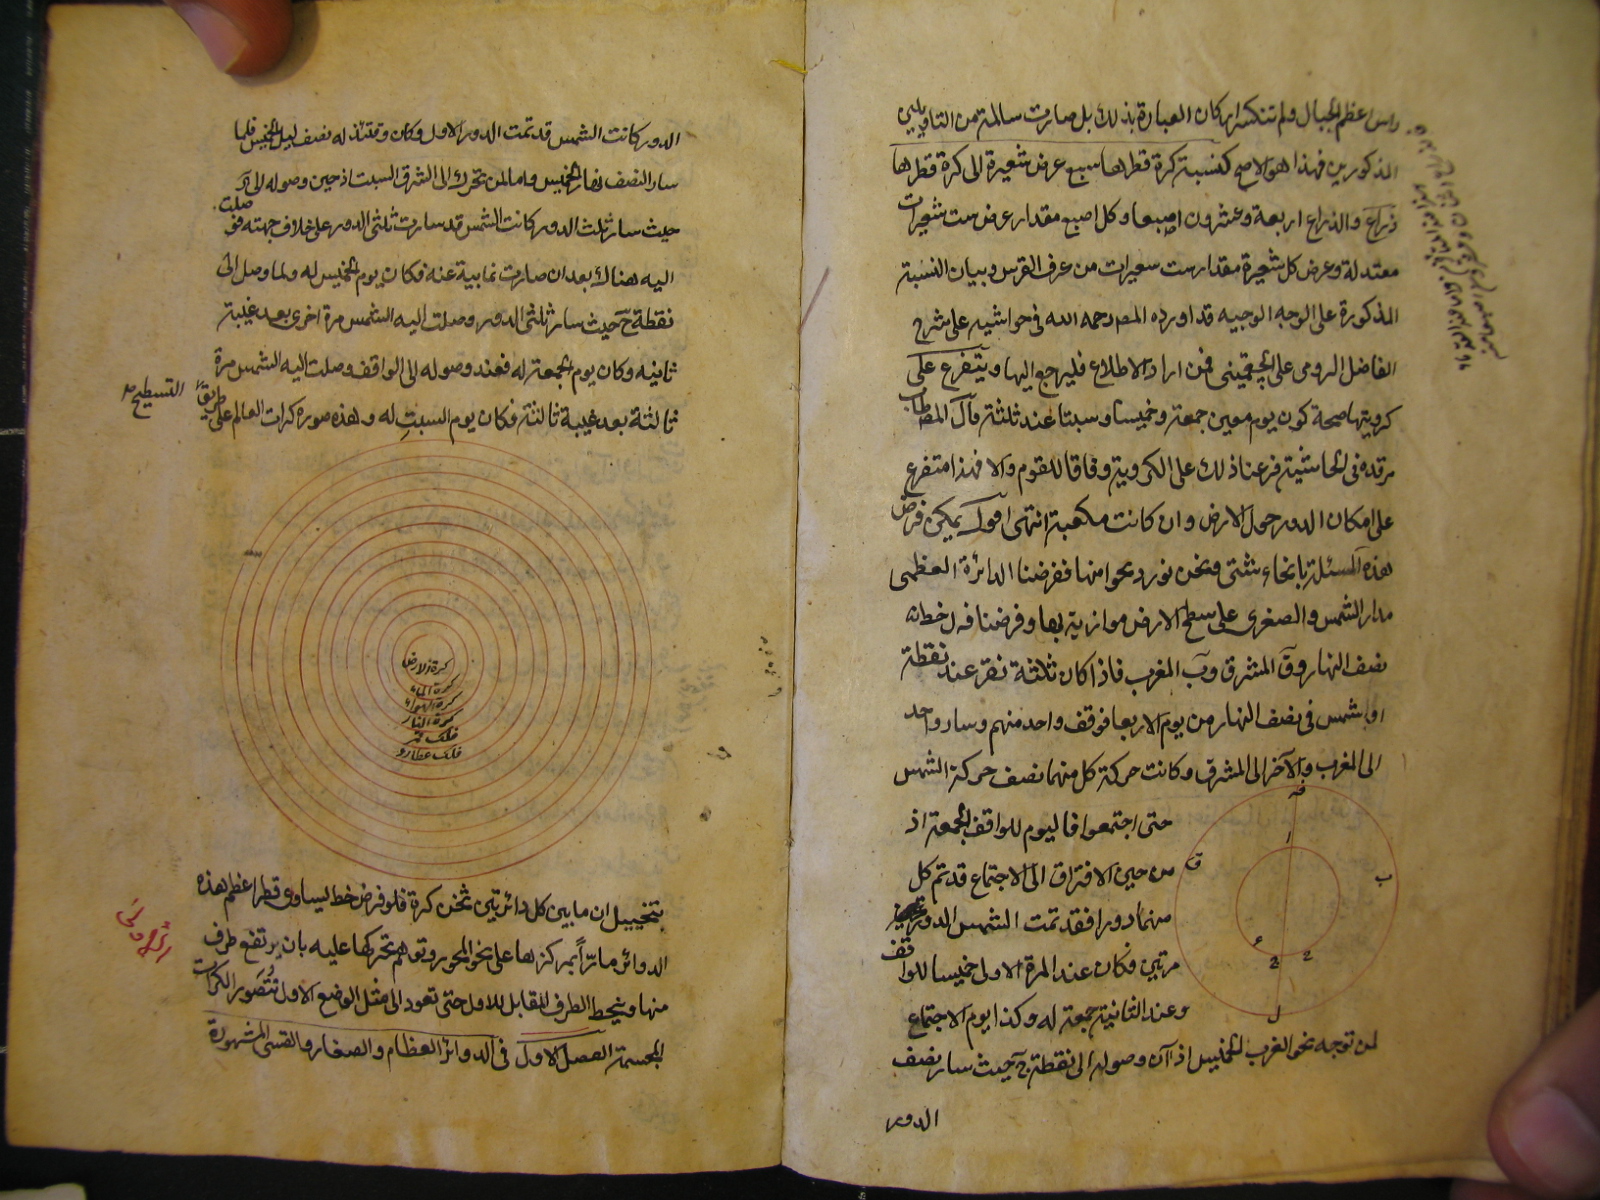 راس اعظم الجبال ولم تنكسر اركان العبارة بذلك بل صارت سالمة من التاويلين
المذكورين فهذا هو الاصح كنسبة كرة قطرها سبع عرض شعيرة الى كرة قطرها
ذراع والذراع اربعة وعشرون اصبعا وكل اصبع مقدار عرض ست شعيرات
معتدلة وعرض كل شعيرة مقدار ست شعيرات من عرف الفرس وبيان النسبة
المذكورة على الوجه الوجيه قد اورده المص رحمه الله في حواشيه على شرح
الفاضل الرومي على الجغميني فمن اراد الاطلاع فليرجع اليها ويتفرع على
كرويتها صحة كون يوم معين جمعة وخميسا وسبتا عند ثلثة قال المص طاب
مرقده في الحاشية فرعنا ذلك على الكروية وفاقا للقوم والا فهذا متفرع
على امكان الدور حول الارض وان كانت مكعبة انتهى اقول يمكن فرض
هذه المسئلة بانحاء شتى ونحن نورد نحوا منها ففرضنا الدائرة العظمى
مدار الشمس والصغرى على سطح الارض موازية بها وفرضنا فه ل خط
نصف النهار وق المشرق وب المغرب فاذا كان ثلثة نفر عند نقطة
ا والشمس في نصف النهار من يوم الاربعا فوقف واحد منهم وسار واحد
الى المغرب والآخر الى المشرق وكانت حركة كل منهما نصف حركة الشمس
حتى اجتمعوا فاليوم للواقف الجمعة اذ
من حين الافتراق الى الاجتماع قد تم كل
منهما دورا فقد تمت الشمس الدور
مرتين وكان عند المرة الاولى خميسا للواقف
وعند الثانية جمعة له وكذا يوم الاجتماع
لمن توجه نحو الغرب الخميس اذ آن وصوله الى نقطة ج حيث سار نصف
الدور
ق
ب
ا
ل
الدور كانت الشمس قد تمت الدور الاول وكان وقتئذ له نصف ليل الخميس فلما
سار النصف نهار الخميس واما لمن تحرك الى الشرق السبت اذ حين وصوله الى
حيث سار ثلث الدور كانت الشمس قد سارت ثلثى الدور على خلاف جهته فوصلت
اليه هناك بعد ان صارت غايبة عنه فكان يوم الخميس له ولما وصل الى
نقطة ح حيث سار ثلثى الدور وصلت اليه الشمس مرة اخرى بعد غيبة
ثانية وكان يوم الجمعة له فعند وصوله الى الواقف وصلت اليه الشمس مرة
ثالثة بعد غيبة ثالثة فكان يوم السبت له وهذه صورة كرات العالم على طريق
التسطيح
كرة الارض
كرة الماء
كرة الهواء
كرة النار
فلك قمر
فلك عطارد
بتخييل ان ما بين كل دائرتين ثخن كرة فلو فرض خط يساوى قطر اعظم هذه
الدوائر مارا بمركزها على نحو المحور وتوهم تحركها عليه بان يرتفع طرف
منها وينحط الطرف المقابل للاول حتى تعود الى مثل الوضع الاول تتصور الكرات
المجسمة الفصل الاول في الدوائر العظام والصغار والقسى المشهورة